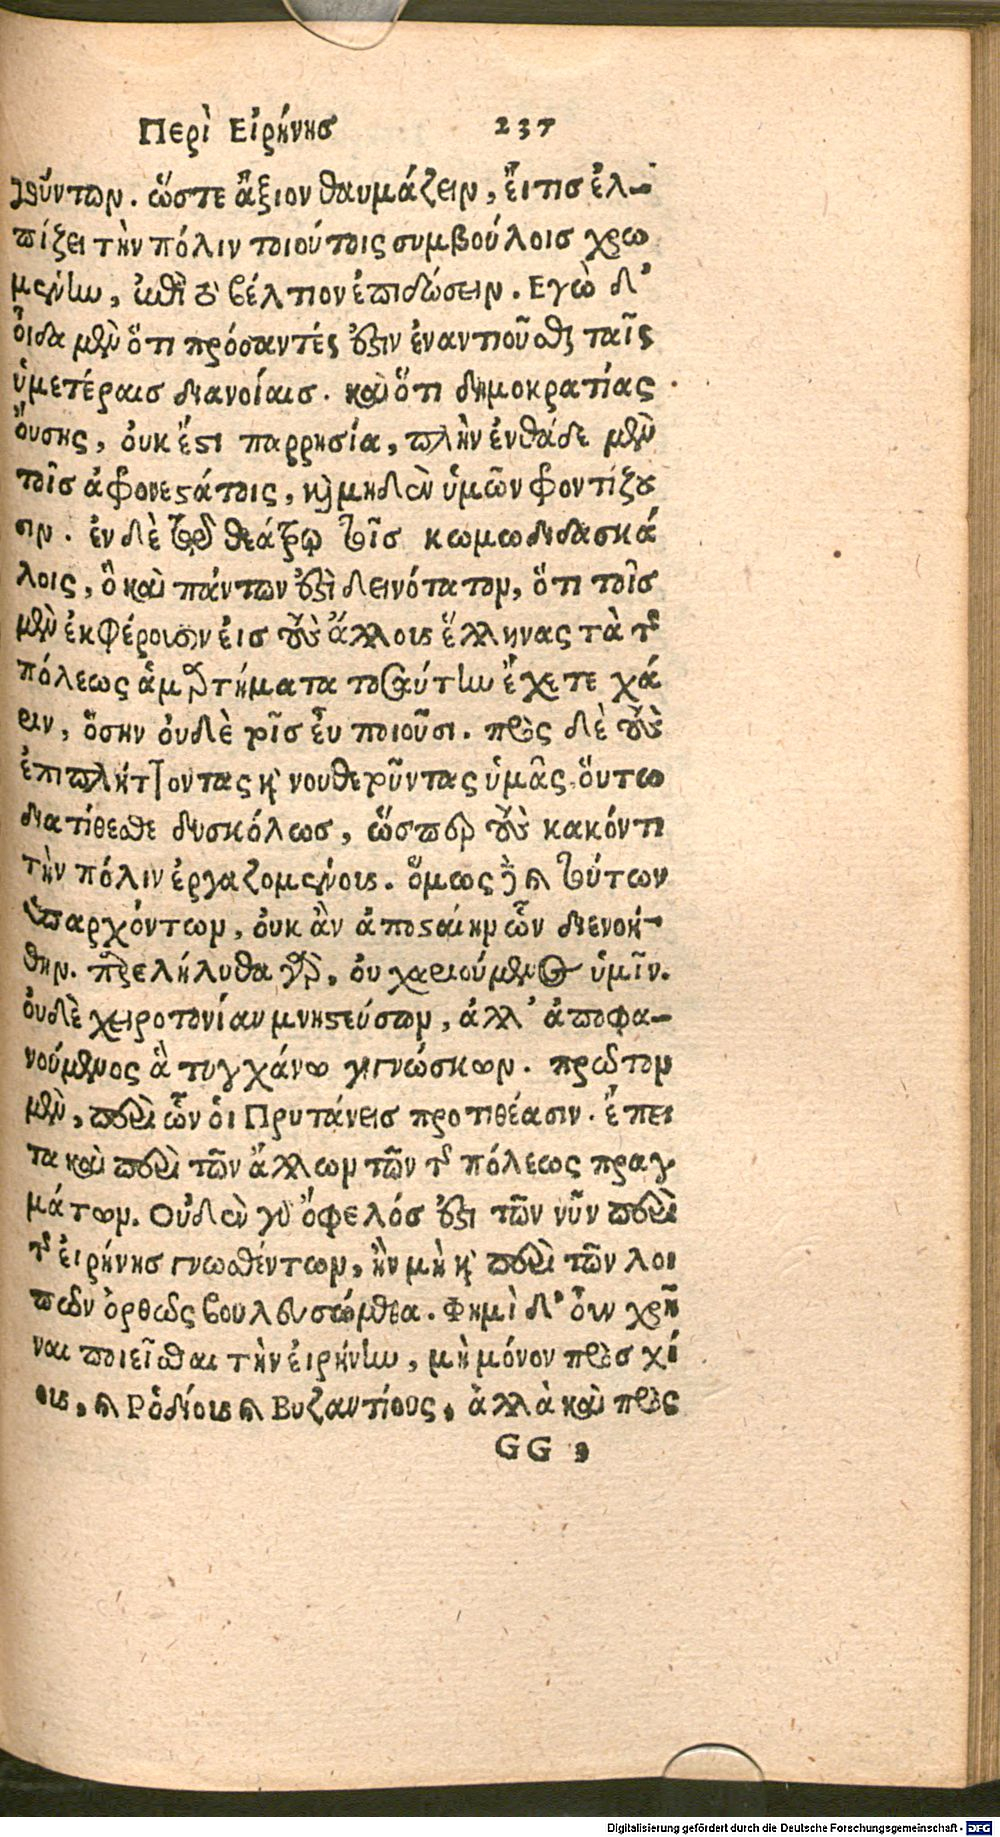 Περὶ Εἰρήνης 237
θούντων. ὥστε ἄξιον θαυμάζειν, εἴτις ἐλ-
πίζει τὴν πόλιν τοιούτοις συμβούλοις χρω
μένην, ἐπὶ τὸ βέλτιον ἐπιδώσειν. Εγὼ δ'
οἶδα μὲν ὅτι πρόσαντές ἐστιν ἐναντιοῦσθαι ταῖς
ὑμετέραις διανοίαις. καὶ ὅτι δημοκρατίας
οὔσης, οὐκ ἔστι παρρησία, πλὴν ἐνθάδε μὲν
τοῖς ἀφρονεστάτοις, καὶ μηδὲν ὑμῶν φροντίζου
σιν. ἐν δὲ τῷ θεάτρῳ τοῖς κωμωδιδασκά
λοις, ὃ καὶ πάντων ἐστὶ δεινότατον, ὅτι τοῖς
μὲν ἐκφέρουσιν εἰς τοὺς ἄλλους ἕλληνας τὰ τῆς
πόλεως ἁμαρτήματα τοσαύτην ἔχετε χά
ριν, ὅσην οὐδὲ τοῖς εὖ ποιοῦσι. πρὸς δὲ τοὺς
ἐπιπλήττοντας καὶ νουθετοῦντας ὑμᾶς οὕτω
διατίθεσθε δυσκόλως, ὥσπερ τοὺς κακόν τι
τὴν πόλιν ἐργαζομένους. ὅμως δὲ καὶ τούτων
ὑπαρχόντων, οὐκ ἂν ἀποσταίην ὧν διενοή-
θην. παρελήλυθα γὰρ, οὐ χαριούμενος ὑμῖν.
οὐδὲ χειροτονίαν μνηστεύσων, ἀλλ' ἀποφα-
νούμενος ἃ τυγχάνω γιγνώσκων. πρῶτον
μὲν, περὶ ὧν οἱ Πρυτάνεις προτιθέασιν. ἔπει
τα καὶ περὶ τῶν ἄλλων τῶν τῆς πόλεως πραγ
μάτων. Οὐδὲν γὰρ ὄφελός ἐστι τῶν νῦν περὶ
τῆς εἰρήνης γνωσθέντων, ἢν μὴ καὶ περὶ τῶν λοι
πῶν ὀρθῶς βουλευσώμεθα. Φημὶ δ' οὖν χρῆ
ναι ποιεῖσθαι τὴν εἰρήνην, μὴ μόνον πρὸς χί
ους, καὶ Ροδίους καὶ Βυζαντίους, ἀλλὰ καὶ πρὸς
GG
Digitalisierung gefördert durch die Deutsche Forschungsgemeinschaft - DFG